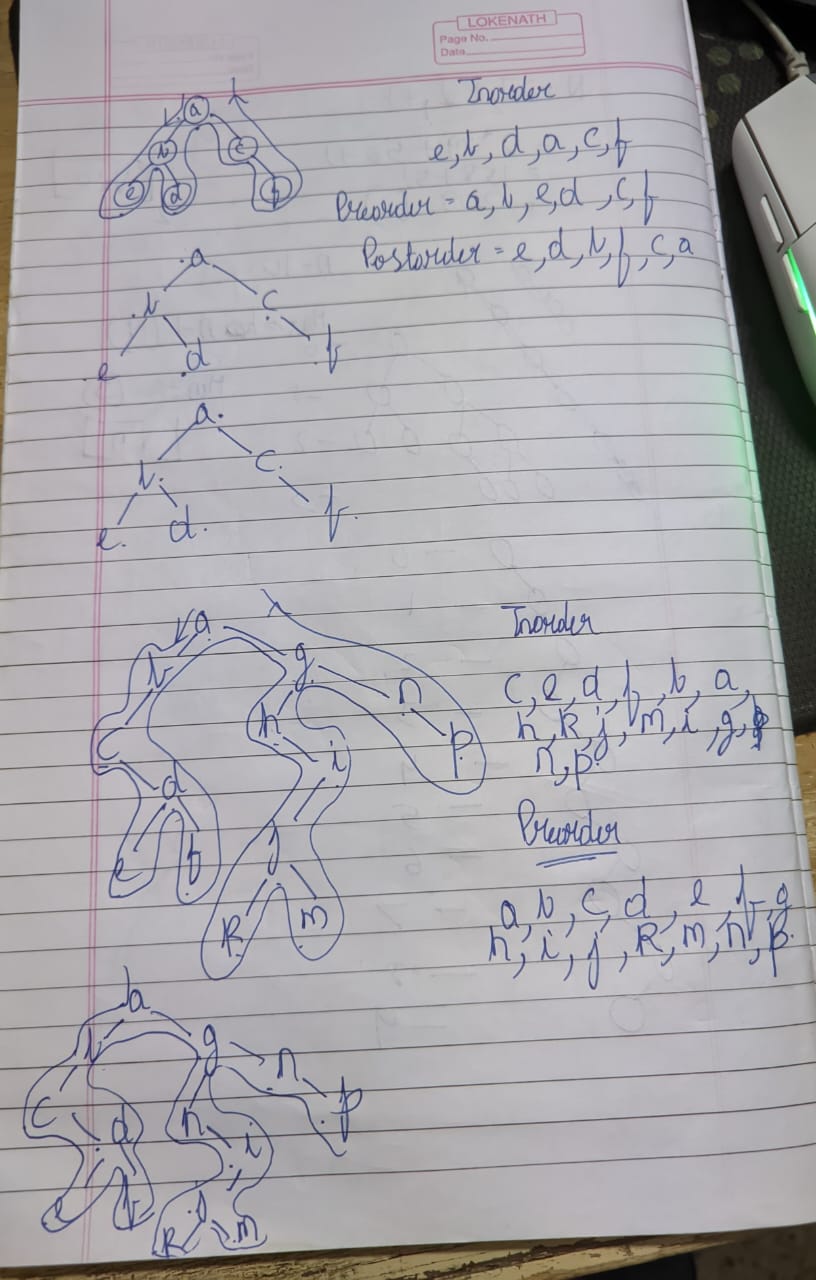 LOKENATH
Page No.
Date
a
b c
e d f
Inorder
e, b, d, a, c, f
Preorder = a, b, e, d, c, f
Postorder = e, d, b, f, c, a
a
b c
e d f
a
b c
e d f
a
b g
c h n
d i p
e f j
k m
Inorder
c, e, d, f, b, a,
h, k, j, m, i, g,
n, p
Preorder
a, b, c, d, e, f, g
h, i, j, k, m, n, p.
a
b g n
c d h i p
e f j
k m